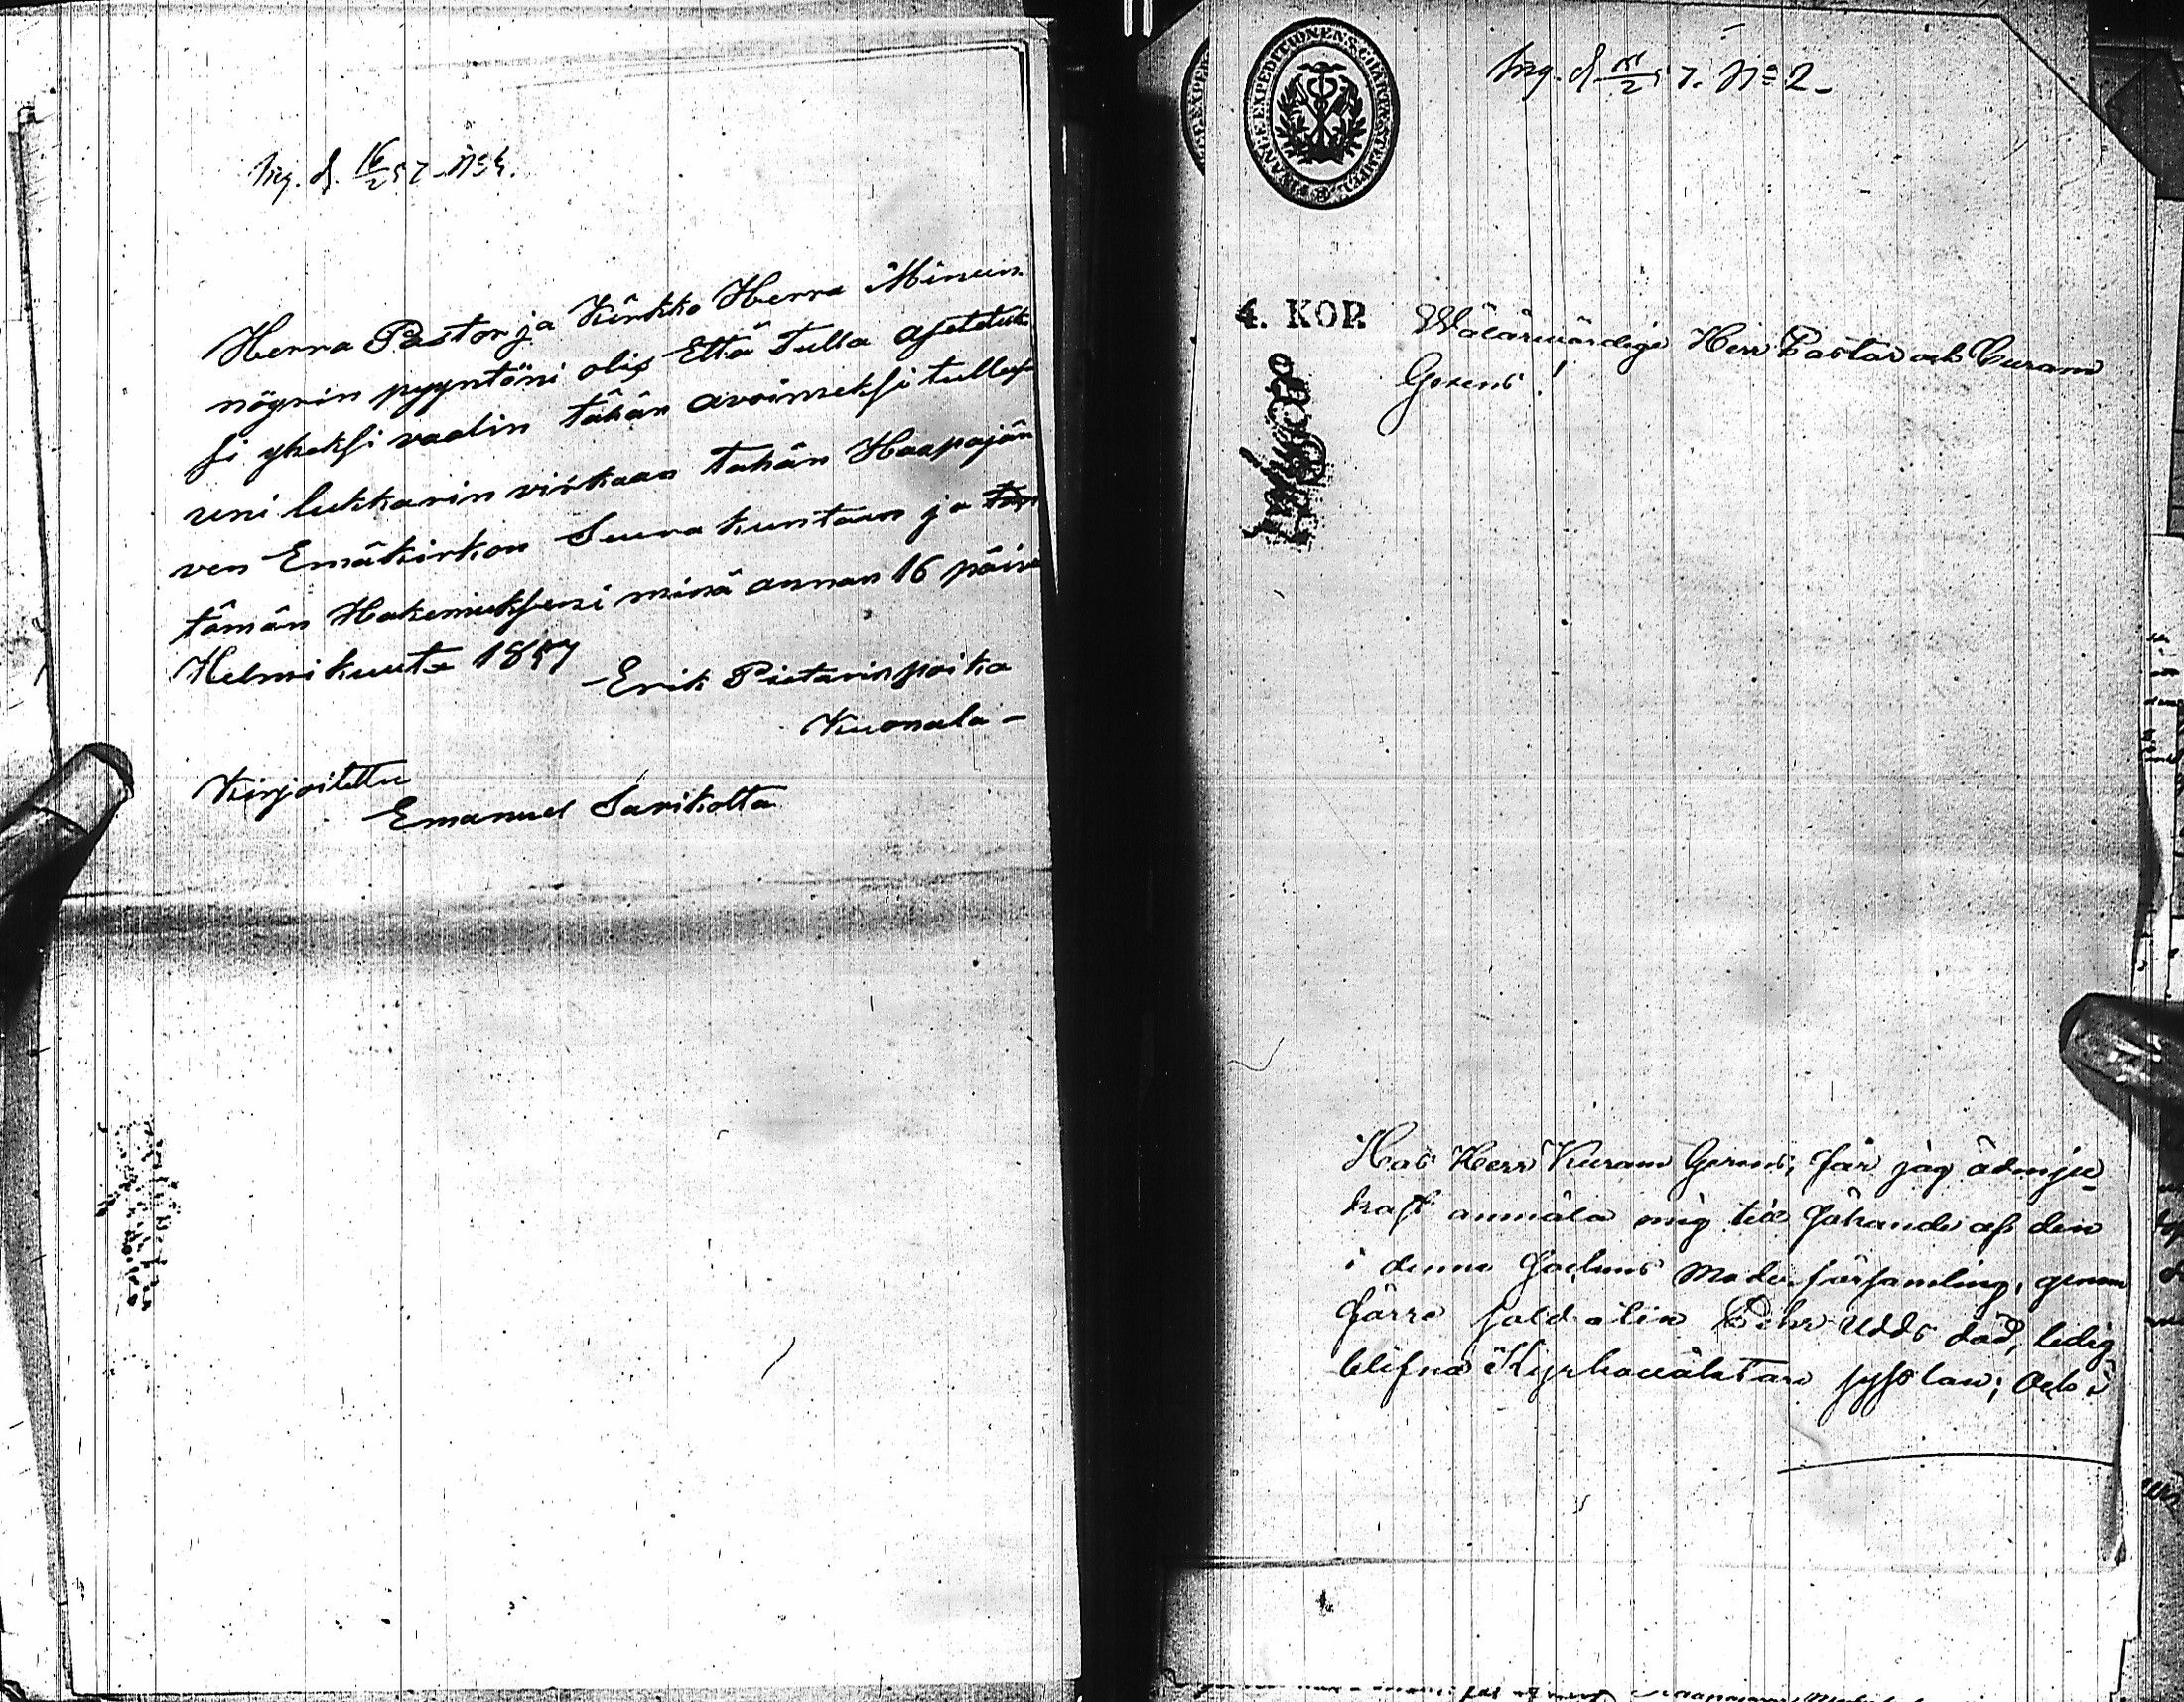 Ing. d. 16/2 57. No 4.
Herra Pastor ja Kirkko Herra Minun
nöyrin pyyntöni olis Että Tulla asetetuk
si yheksi vaalin tähän avoimeksi tulles
uni lukkarin virkaan tahän Haapajär
ven Emäkirkon Seurakuntaan ja
tämän Hakemukseni minä annan 16 päivä
Helmikuuta 1857
Erik Pietarinpoika
Kuonala -
Kirjoitettu
Emanuel Sarikotta
FINANCE EXPEDITIONENS CHARTÆ STEMPEL
Ing. d. /2 57. No 2.
4. KOP.
Wälärewördige Herr Pastor och Curam
Gerens!
Hos Herr Kuram Gerens, får jag ödmju
kast anmäla mig till Sökande af den
i denna Sockens Moder församling, genom
förre soldaten Pehr Udds död, ledig
blifna Kyrkowäktare sysslan; Och i